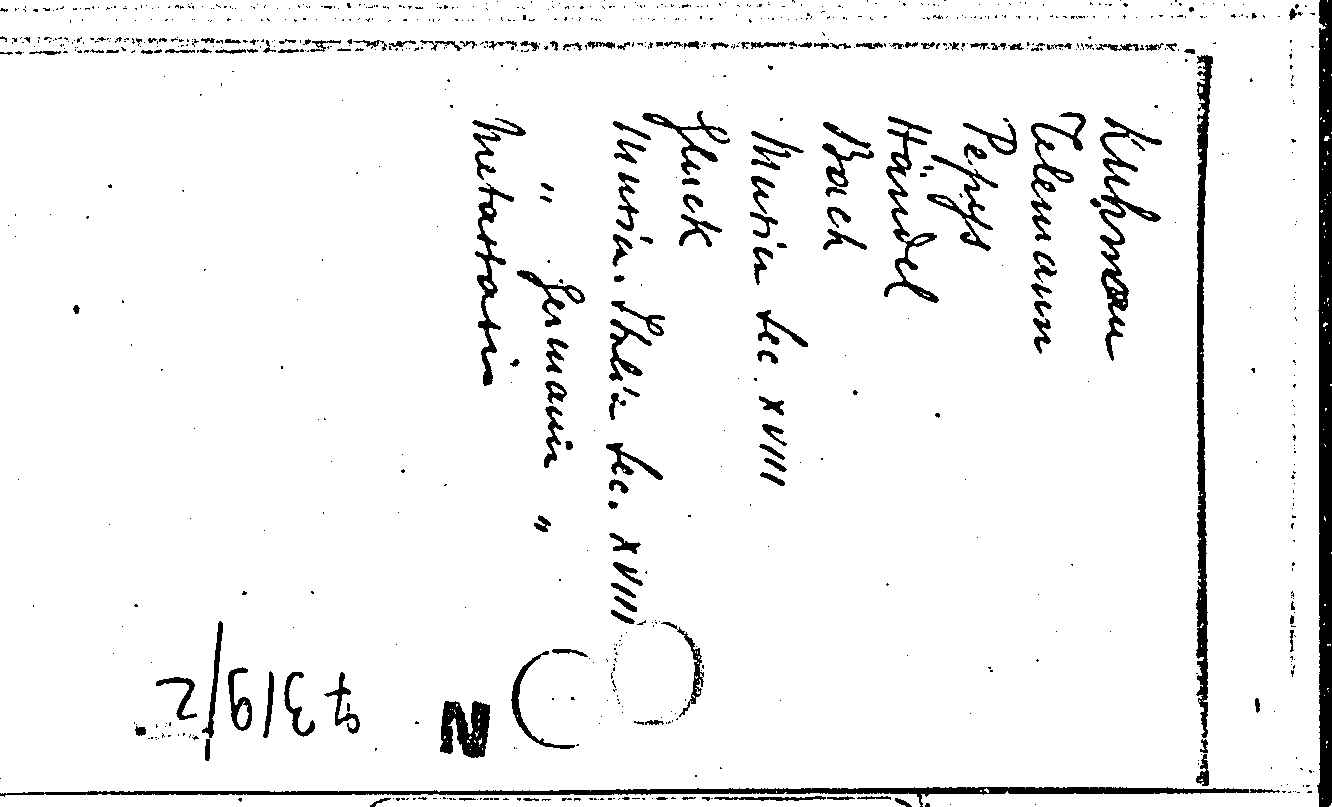 Kuhnau
Telemann
Pepys
Händel
Bach
Musica Sec XVIII
Gluck
Musica. Italia Sec. XVIII
" Germania "
Metastasio
N